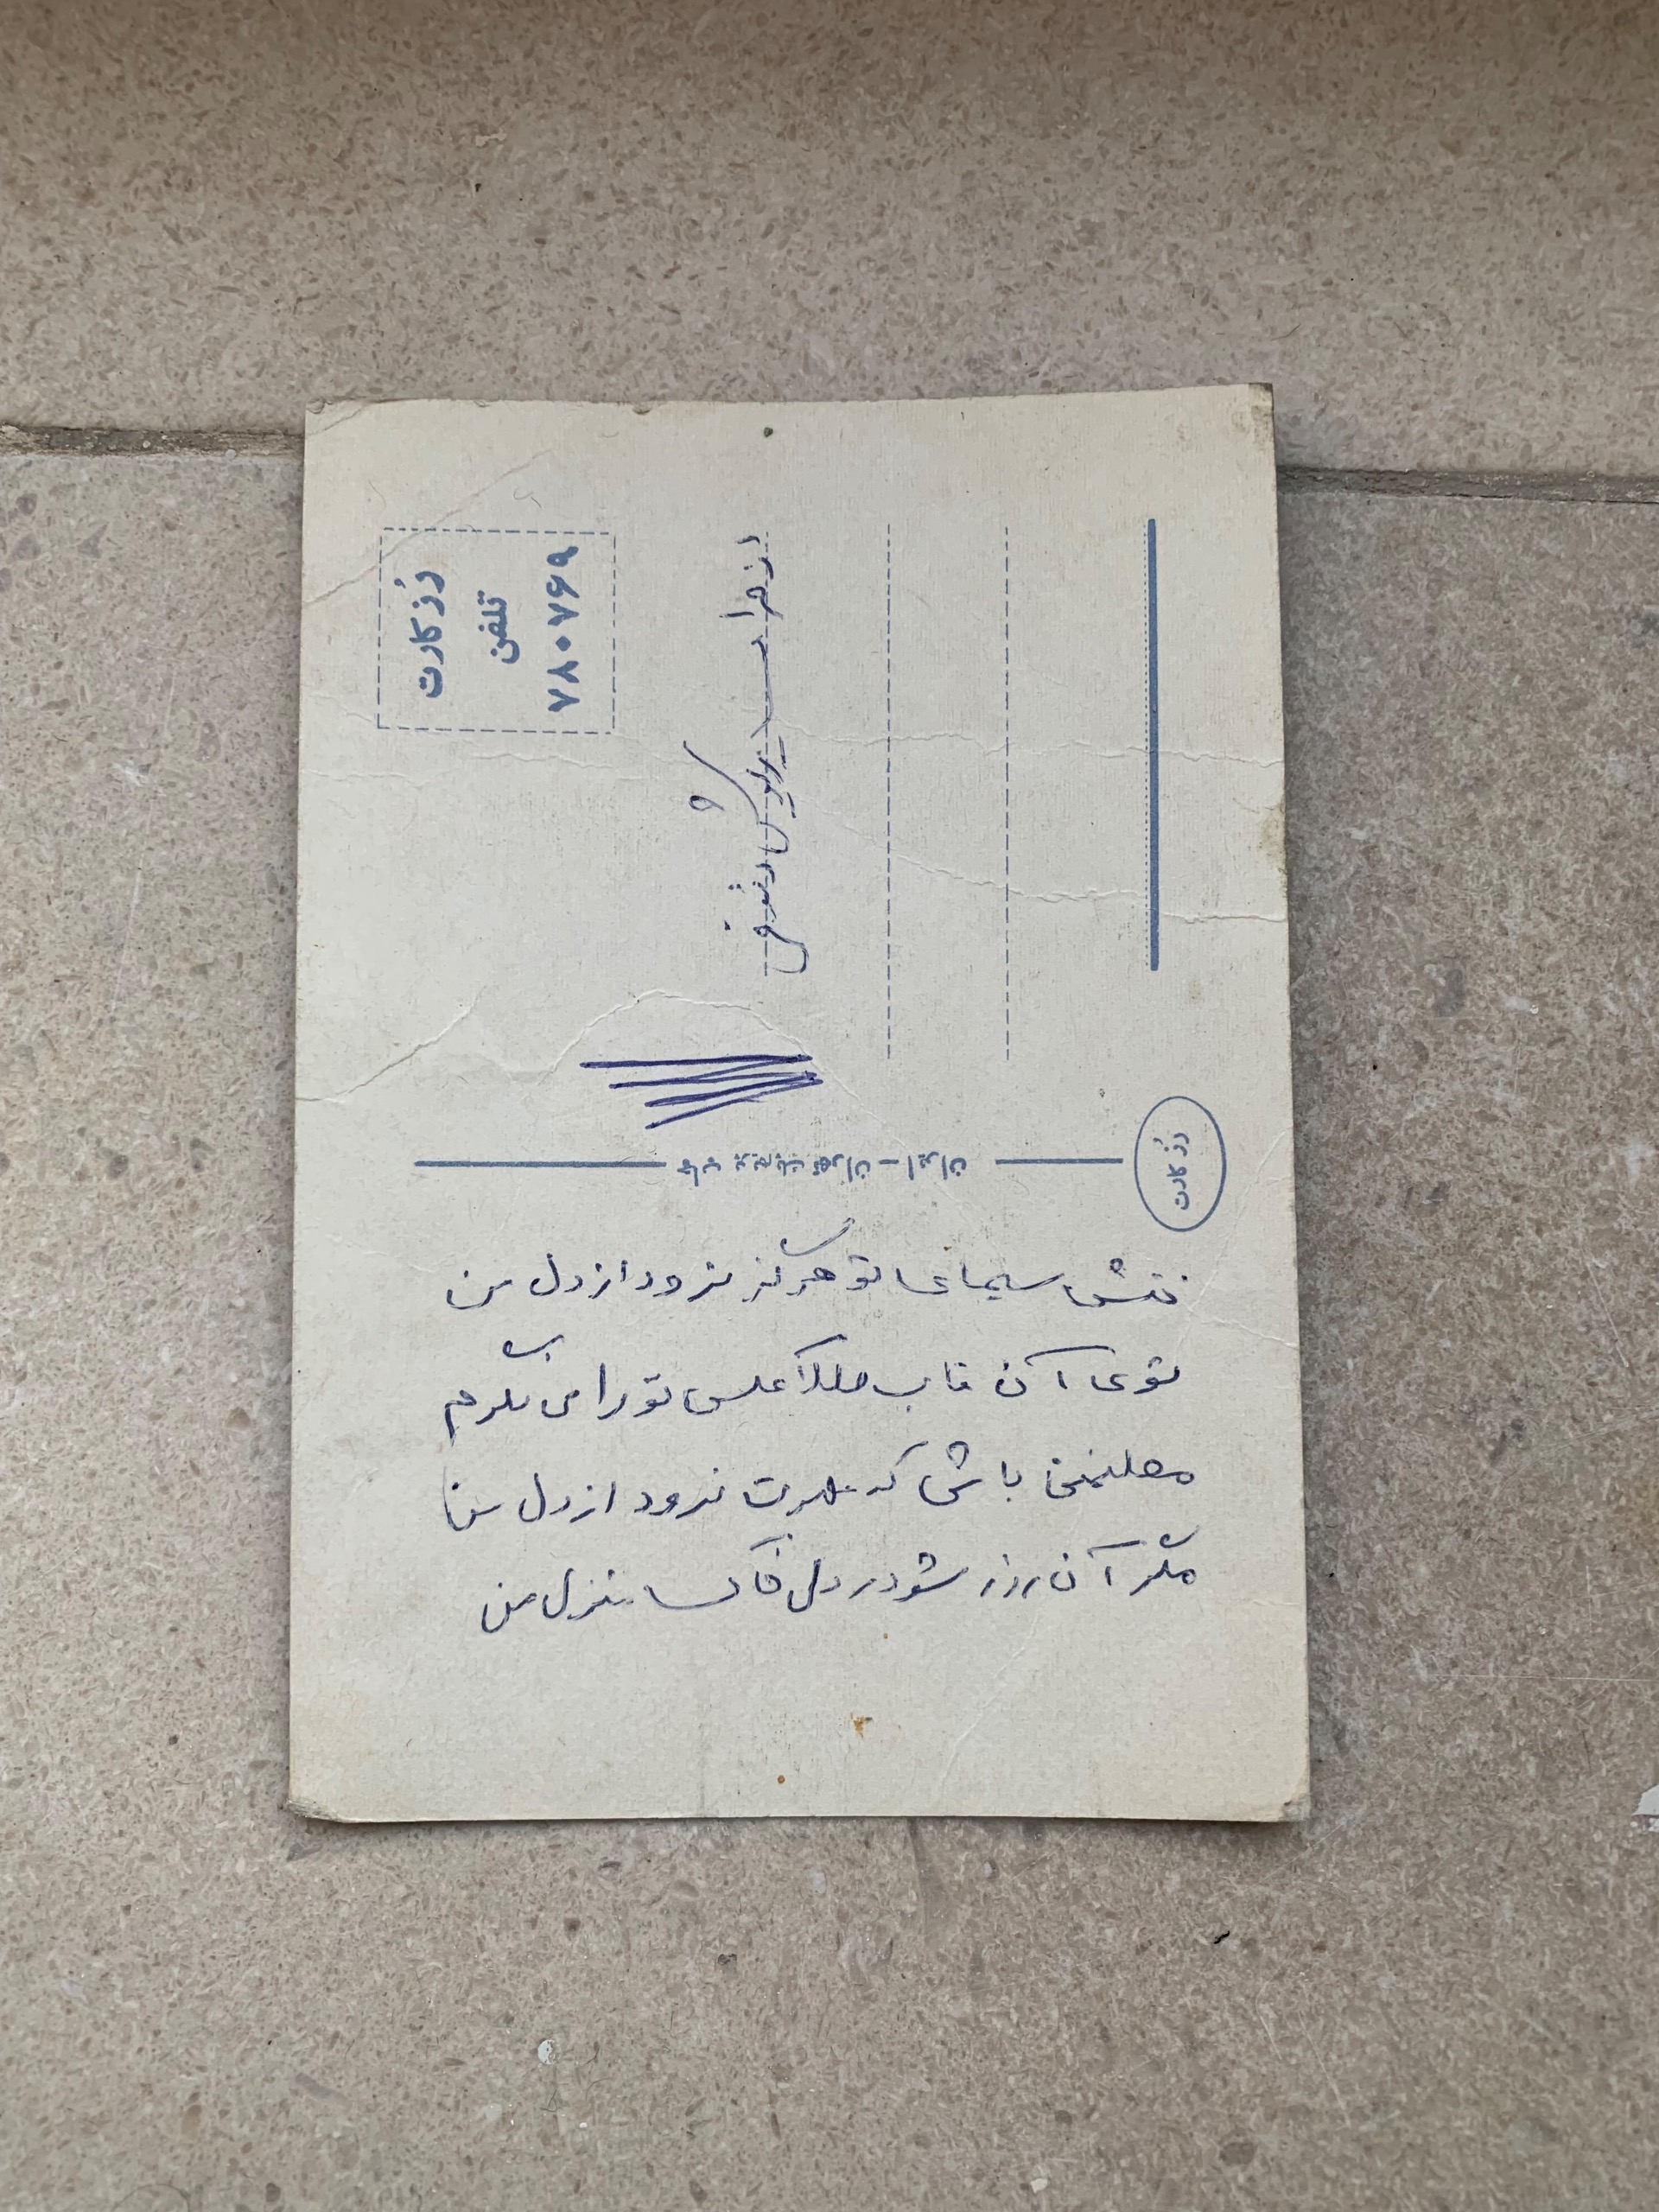 رُز کارت
تلفن
۷۸۰۰۷۶۹
چاپ تهران – ایران
رُز کارت
نقش سیمای تو هرگز نرود از دل من
توی آن قاب طلا عکس تو را می نگرم
مطمئن باش که مهرت نرود از دل من
مگر آن روز شود در دل خاک منزل من